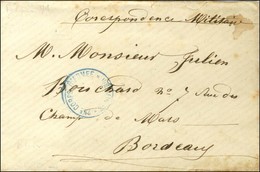 Corespondence Militaire
M. Monsieur Julien
Bouchard no 7 rue du
Champ de Mars
Bordeaux